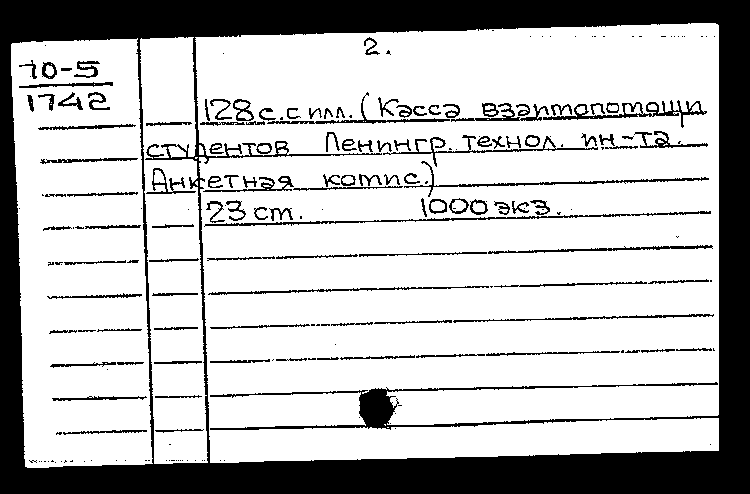 2.
70-5
1742
128 с. с илл. (Касса взаимопомощи
студентов Ленингр. технол. ин-та.
Анкетная комис.)
23 см. 1000 экз.